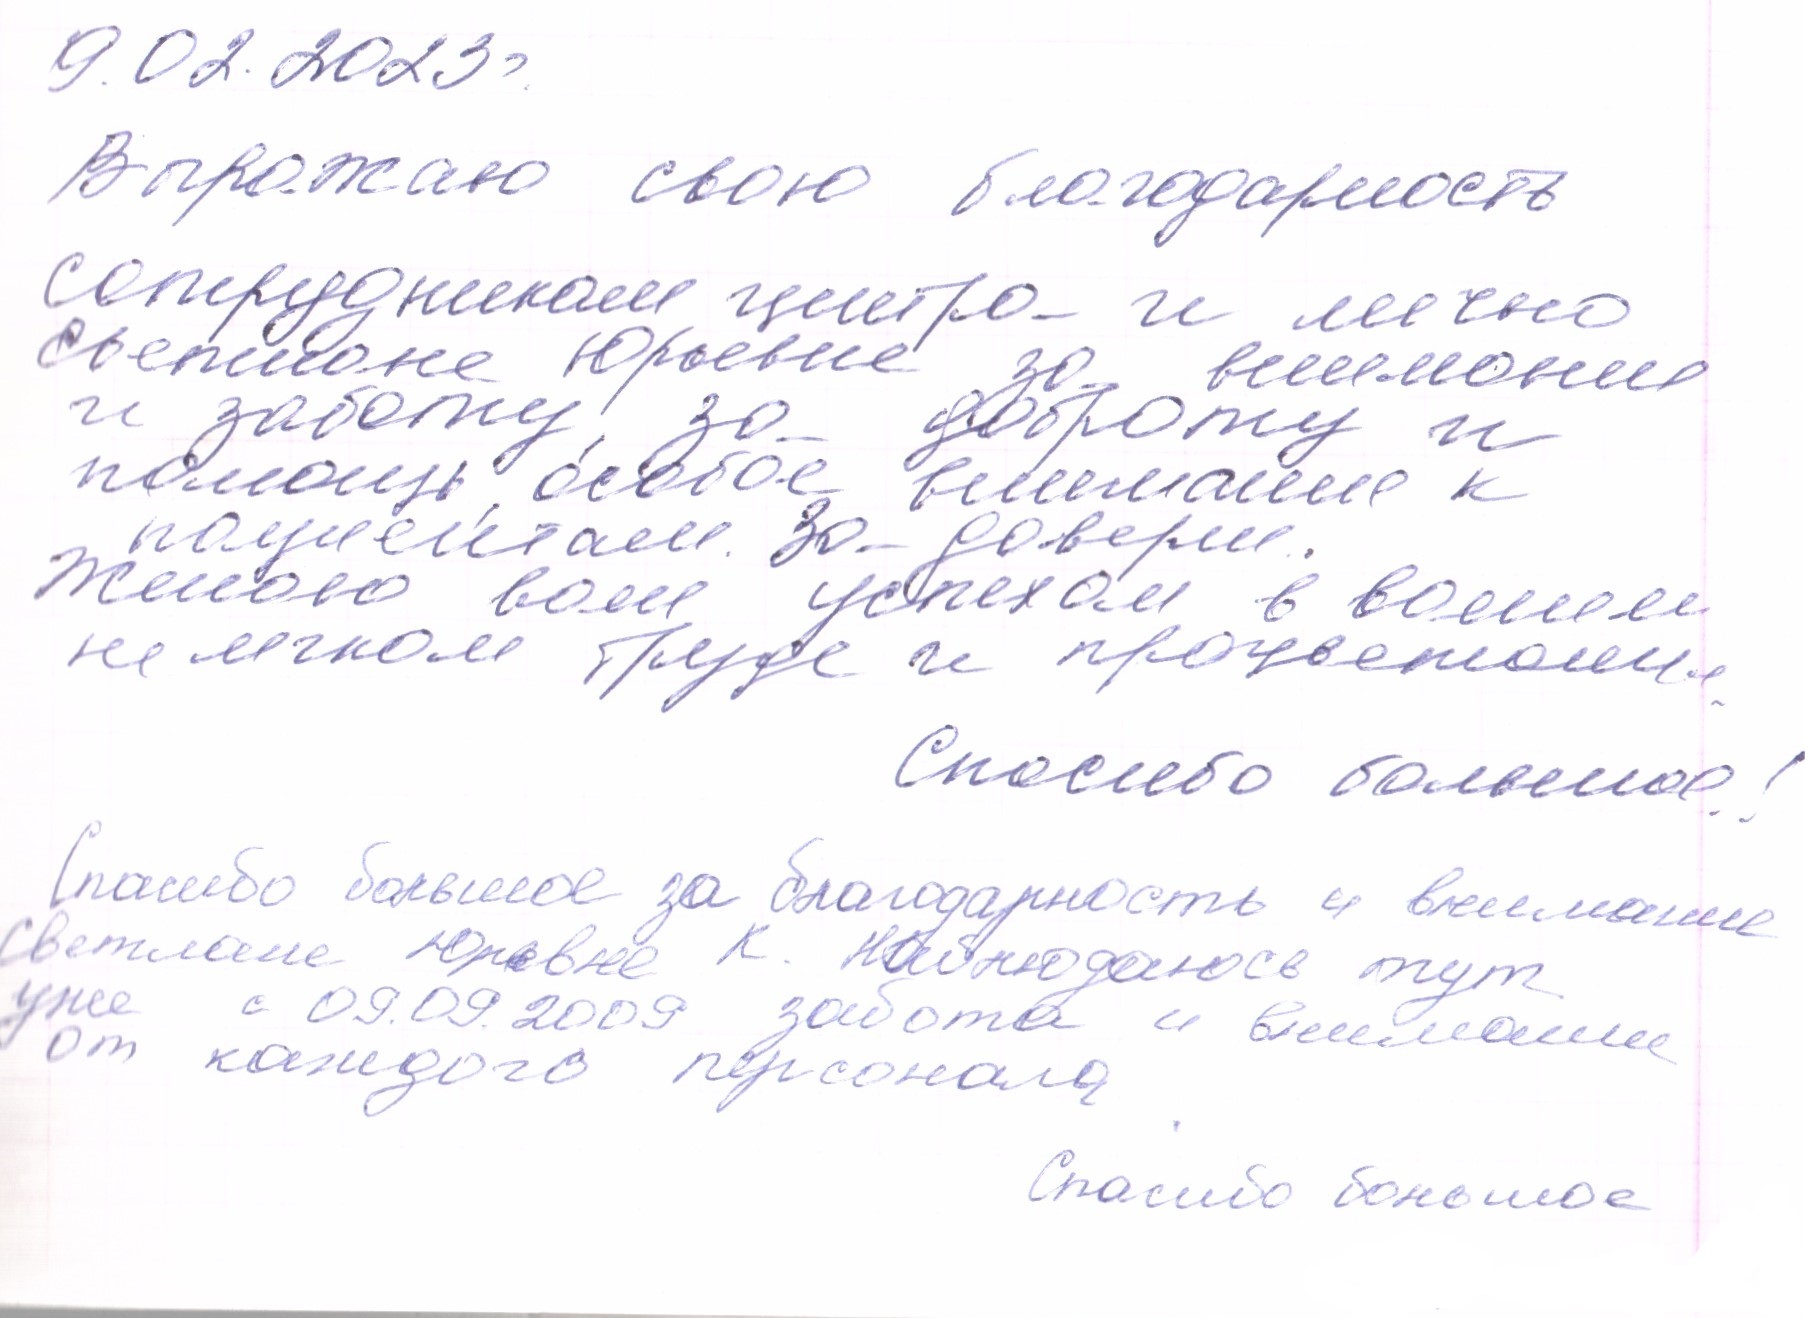 9.02.2023г.
Выражаю свою благодарность
сотрудникам центра и лично
Светлане Юрьевне за внимание
и заботу, за доброту и
помощь, особое внимание к
пациентам. За доверие.
Желаю вам успехом в вашем
не легком труде и процветания.
Спасибо большое!
Спасибо большое за благодарность и внимание
Светлане Юрьевне К. Наблюдаюсь тут
уже с 09.09.2009 забота и внимание
от каждого персонала
Спасибо большое